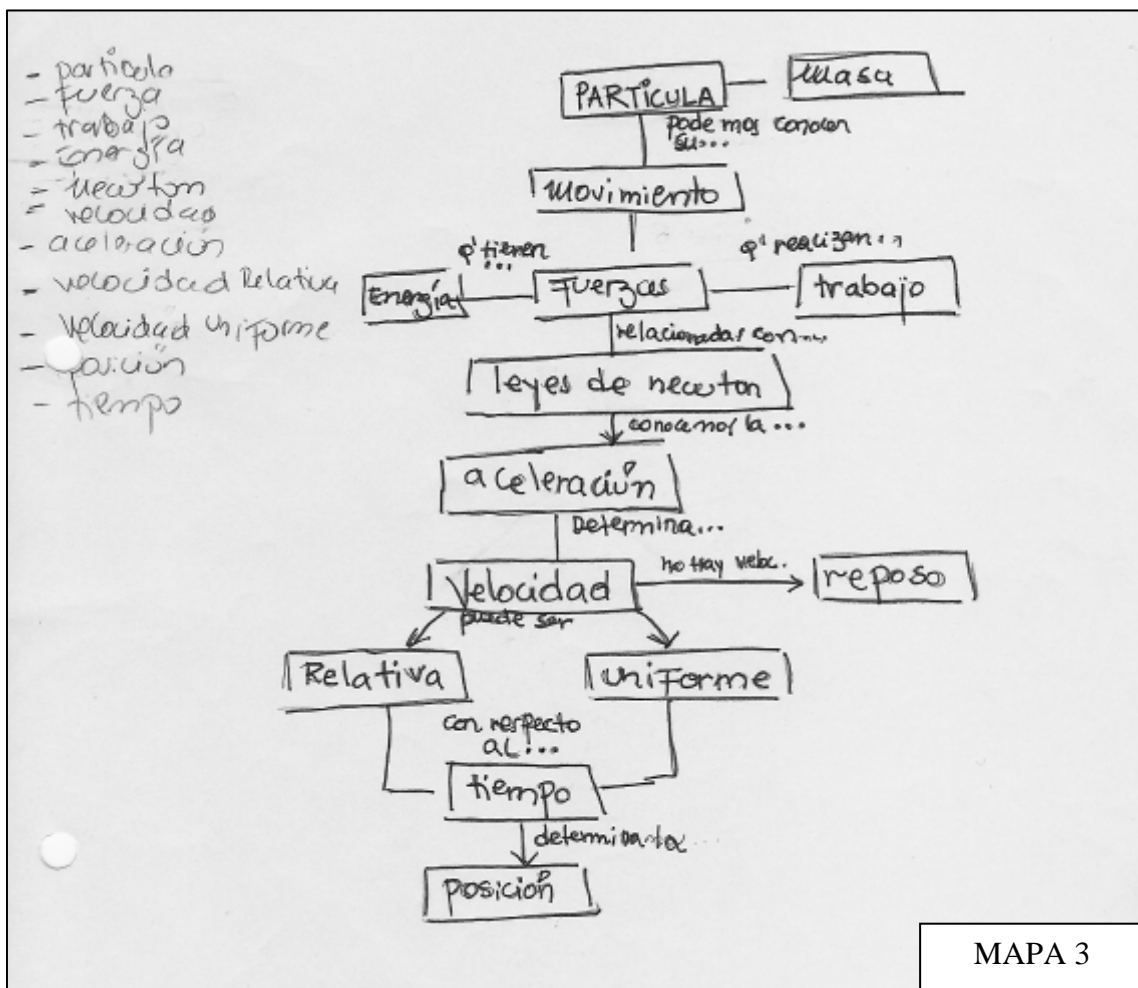 - partícula
- Fuerza
- trabajo
- Energía
- Newton
- velocidad
- aceleración
- velocidad Relativa
- velocidad uniforme
- posición
- tiempo
PARTÍCULA
masa
podemos conocer
su...
movimiento
q' tienen
...
q' realizan...
Energía
Fuerzas
trabajo
relacionadas con...
leyes de newton
conocemos la ...
aceleración
Determina...
Velocidad
no Hay veloc.
reposo
puede ser
Relativa
uniforme
con respecto
al ...
tiempo
determina la ...
posición
MAPA 3